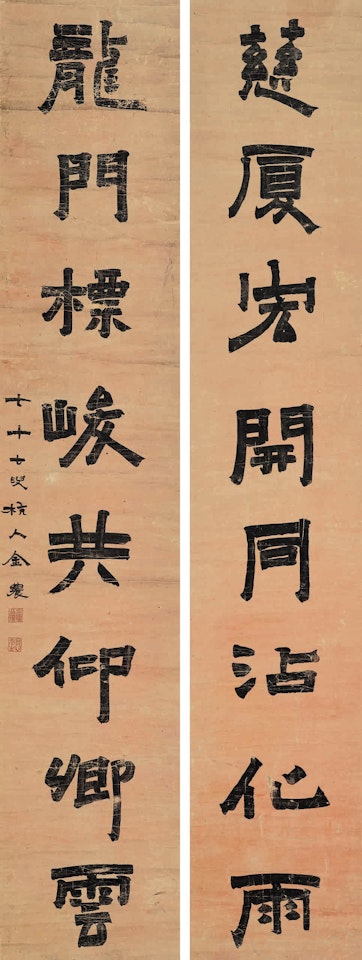 慈厦宏開同沾化雨
龍門標峻共仰卿雲
七十七叟杭人金農